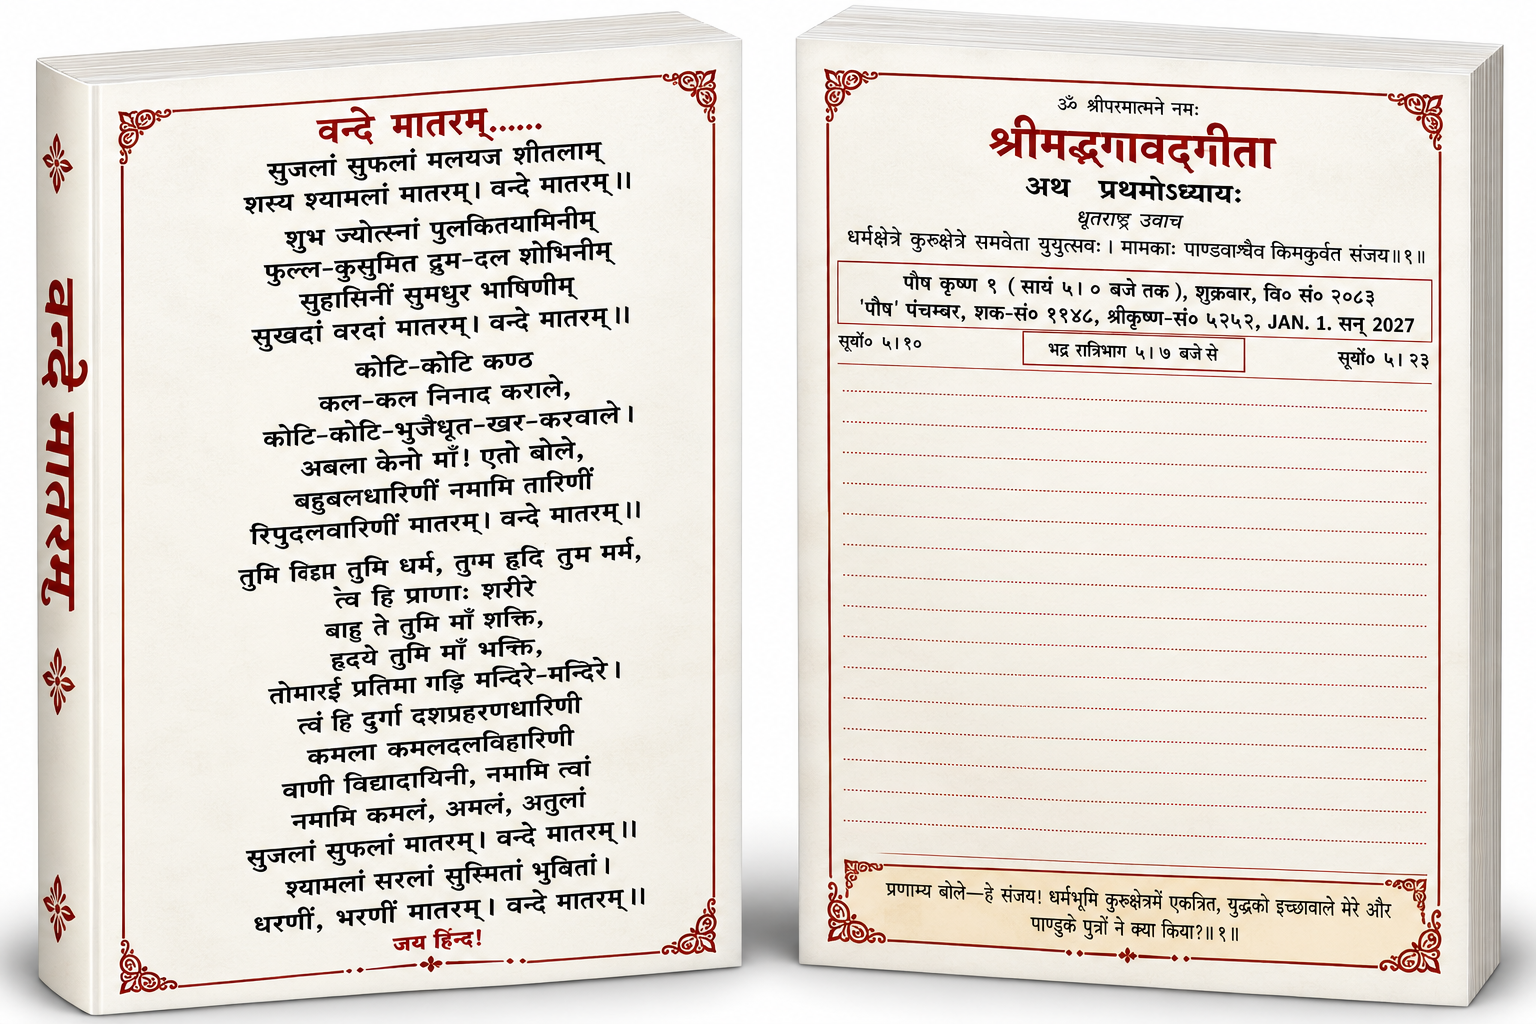 वन्दे मातरम्
वन्दे मातरम्......
सुजलां सुफलां मलयज शीतलाम्
शस्य श्यामलां मातरम्। वन्दे मातरम्॥
शुभ ज्योत्स्नां पुलकितयामिनीम्
फुल्ल-कुसुमित द्रुम-दल शोभिनीम्
सुहासिनीं सुमधुर भाषिणीम्
सुखदां वरदां मातरम्। वन्दे मातरम्॥
कोटि-कोटि कण्ठ
कल-कल निनाद कराले,
कोटि-कोटि-भुजैधूत-खर-करवाले।
अबला केनो माँ! एतो बोले,
बहुबलधारिणीं नमामि तारिणीं
रिपुदलवारिणीं मातरम्। वन्दे मातरम्॥
तुमि तुमि धर्म, तुग्म हृदि तुम मर्म,
त्वे हि प्राणाः शरीरे
बाहु ते तुमि माँ शक्ति,
हृदये तुमि माँ भक्ति,
तोमारई प्रतिमा गड़ि मन्दिरे-मन्दिरे।
त्वं हि दुर्गा दशप्रहरणधारिणी
कमला कमलदलविहारिणी
वाणी विद्यादायिनी, नमामि त्वां
नमामि कमलं, अमलं, अतुलां
सुजलां सुफलां मातरम्। वन्दे मातरम्॥
श्यामलां सरलां सुस्मितां भुबितां।
धरणीं, भरणीं मातरम्। वन्दे मातरम्॥
जय हिंन्द!
ॐ श्रीपरमात्मने नमः
श्रीमद्भगावद्गीता
अथ प्रथमोऽध्यायः
धृतराष्ट्र उवाच
धर्मक्षेत्रे कुरुक्षेत्रे समवेता युयुत्सवः। मामकाः पाण्डवाश्चैव किमकुर्वत संजय॥१॥
पौष कृष्ण ९ ( सायं ५।० बजे तक ), शुक्रवार, वि० सं० २०८३
'पौष' पंचम्बर, शक-सं० १९४८, श्रीकृष्ण-सं० ५२५२, JAN. 1. सन् 2027
सूर्यो० ५।१०
भद्र रात्रिभाग ५।७ बजे से
सूर्यो० ५।२३
प्रणाम्य बोले—हे संजय! धर्मभूमि कुरुक्षेत्रमें एकत्रित, युद्धको इच्छावाले मेरे और
पाण्डुके पुत्रों ने क्या किया?॥१॥